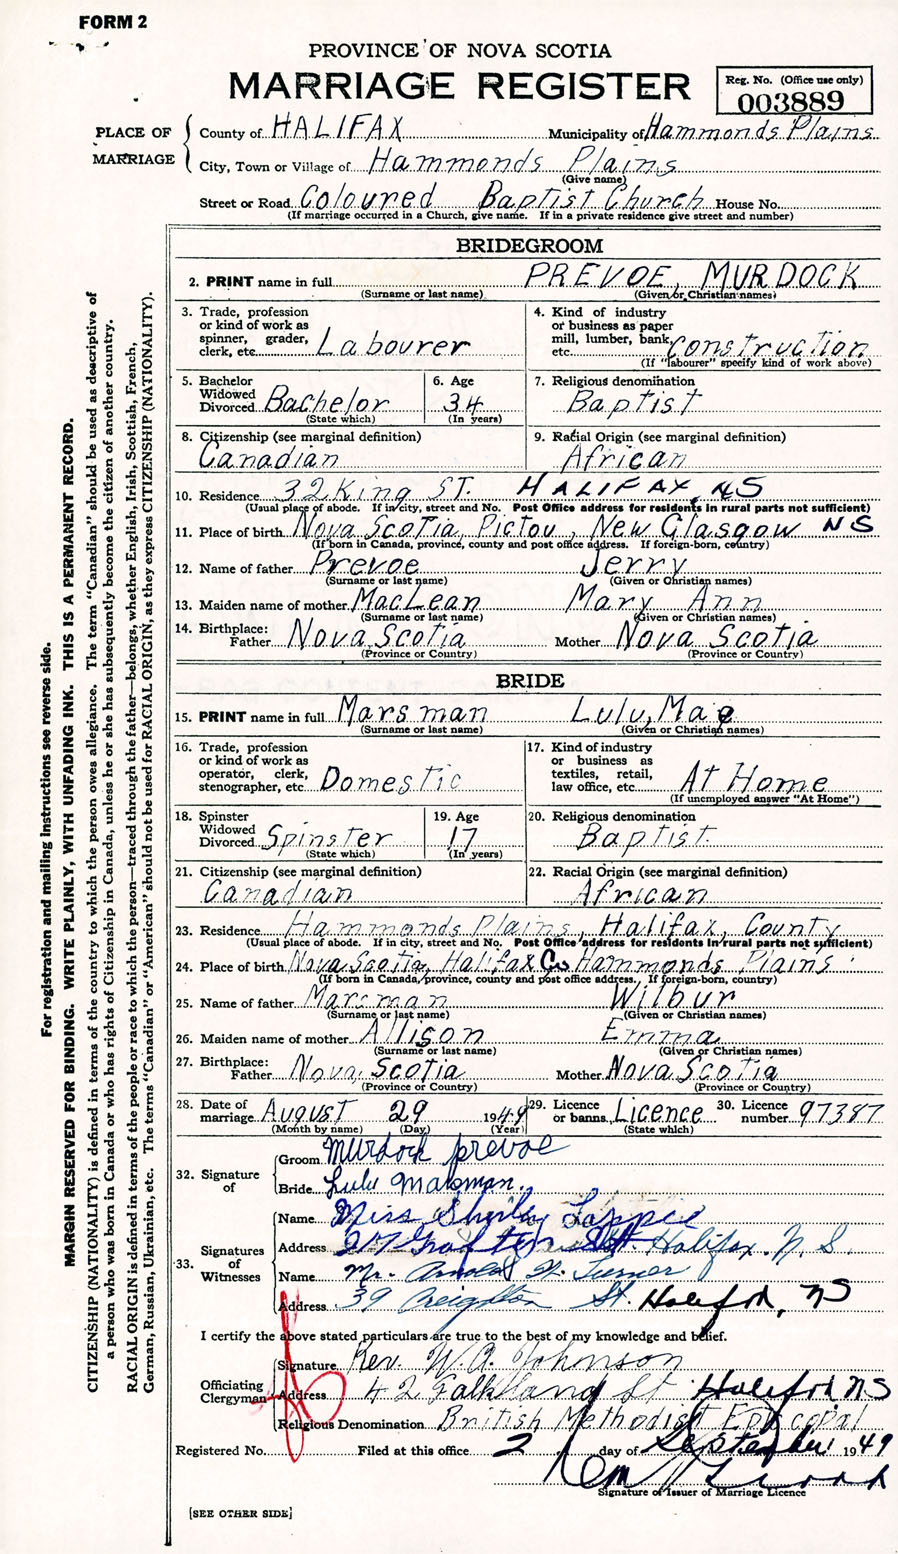 FORM 2
PROVINCE OF NOVA SCOTIA
MARRIAGE REGISTER
Reg. No. (Office use only)
003889
PLACE OF MARRIAGE
County of HALIFAX Municipality of Hammonds Plains
City, Town or Village of Hammonds Plains
(Give name)
Street or Road Coloured Baptist Church House No.
(If marriage occurred in a Church, give name. If in a private residence give street and number)
BRIDEGROOM
2. PRINT name in full PREVOE, MURDOCK
(Surname or last name) (Given or Christian names)
3. Trade, profession
or kind of work as
spinner, grader,
clerk, etc. Labourer
4. Kind of industry
or business as paper
mill, lumber, bank,
etc. Construction
(If "labourer" specify kind of work above)
5. Bachelor
Widowed
Divorced Bachelor
(State which)
6. Age
34
(In years)
7. Religious denomination
Baptist
8. Citizenship (see marginal definition)
Canadian
9. Racial Origin (see marginal definition)
African
10. Residence 32 King ST. HALIFAX, NS
(Usual place of abode. If in city, street and No. Post Office address for residents in rural parts not sufficient)
11. Place of birth Nova Scotia, Pictou, New Glasgow NS
(If born in Canada, province, county and post office address. If foreign-born, country)
12. Name of father Prevoe Jerry
(Surname or last name) (Given or Christian names)
13. Maiden name of mother MacLean Mary Ann
(Surname or last name) (Given or Christian names)
14. Birthplace:
Father Nova Scotia Mother Nova Scotia
(Province or Country) (Province or Country)
BRIDE
15. PRINT name in full Marsman Lulu, Mae
(Surname or last name) (Given or Christian names)
16. Trade, profession
or kind of work as
operator, clerk,
stenographer, etc. Domestic
17. Kind of industry
or business as
textiles, retail,
law office, etc. At Home
(If unemployed answer "At Home")
18. Spinster
Widowed
Divorced Spinster
(State which)
19. Age
17
(In years)
20. Religious denomination
Baptist
21. Citizenship (see marginal definition)
Canadian
22. Racial Origin (see marginal definition)
African
23. Residence Hammonds Plains, Halifax, County
(Usual place of abode. If in city, street and No. Post Office address for residents in rural parts not sufficient)
24. Place of birth Nova Scotia, Halifax Co Hammonds Plains
(If born in Canada, province, county and post office address. If foreign-born, country)
25. Name of father Marsman Wilbur
(Surname or last name) (Given or Christian names)
26. Maiden name of mother Allison Emma
(Surname or last name) (Given or Christian names)
27. Birthplace:
Father Nova, Scotia Mother Nova Scotia
(Province or Country) (Province or Country)
28. Date of
marriage August 29 1949
(Month by name) (Day) (Year)
29. Licence
or banns Licence
(State which)
30. Licence
number 97387
32. Signature of
Groom Murdock prevoe
Bride Lulu Marsman.
33. Signatures of Witnesses
Name Miss Shirley
Address 217 Grafton St. Halifax. N.S.
Name Mr. Arnold W. Turner
Address 39 Creighton St. Halifax, NS
I certify the above stated particulars are true to the best of my knowledge and belief.
Officiating Clergyman
Signature Rev. W. A. Johnson
Address 42 Falkland St Halifax NS
Religious Denomination British Methodist Episcopal
Registered No. Filed at this office 2 day of September 1949
Signature of Issuer of Marriage Licence
[SEE OTHER SIDE]
For registration and mailing instructions see reverse side.
MARGIN RESERVED FOR BINDING. WRITE PLAINLY, WITH UNFADING INK. THIS IS A PERMANENT RECORD.
CITIZENSHIP (NATIONALITY) is defined in terms of the country to which the person owes allegiance. The term "Canadian" should be used as descriptive of
a person who was born in Canada or who has rights of Citizenship in Canada, unless he or she has subsequently become the citizen of another country.
RACIAL ORIGIN is defined in terms of the people or race to which the person—traced through the father—belongs, whether English, Irish, Scottish, French,
German, Russian, Ukrainian, etc. The terms "Canadian" or "American" should not be used for RACIAL ORIGIN, as they express CITIZENSHIP (NATIONALITY).